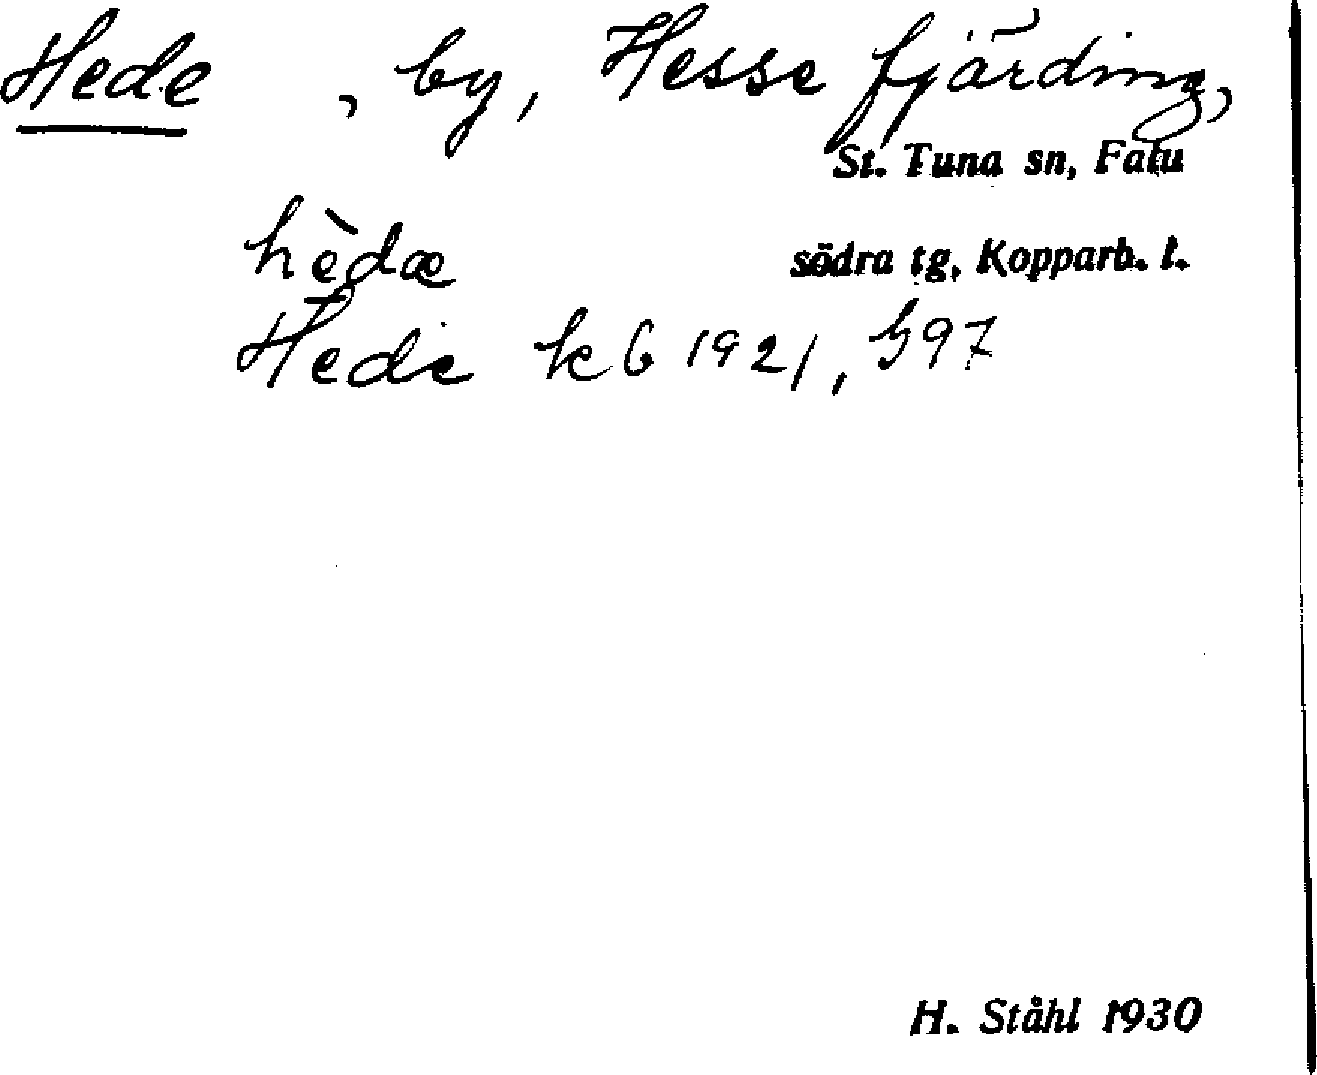 Hede , by, Hesse fjärding,
St. Tuna sn, Falu
hèdæ
södra tg, Kopparb. l.
Hede kb 1921, 597
H. Ståhl 1930